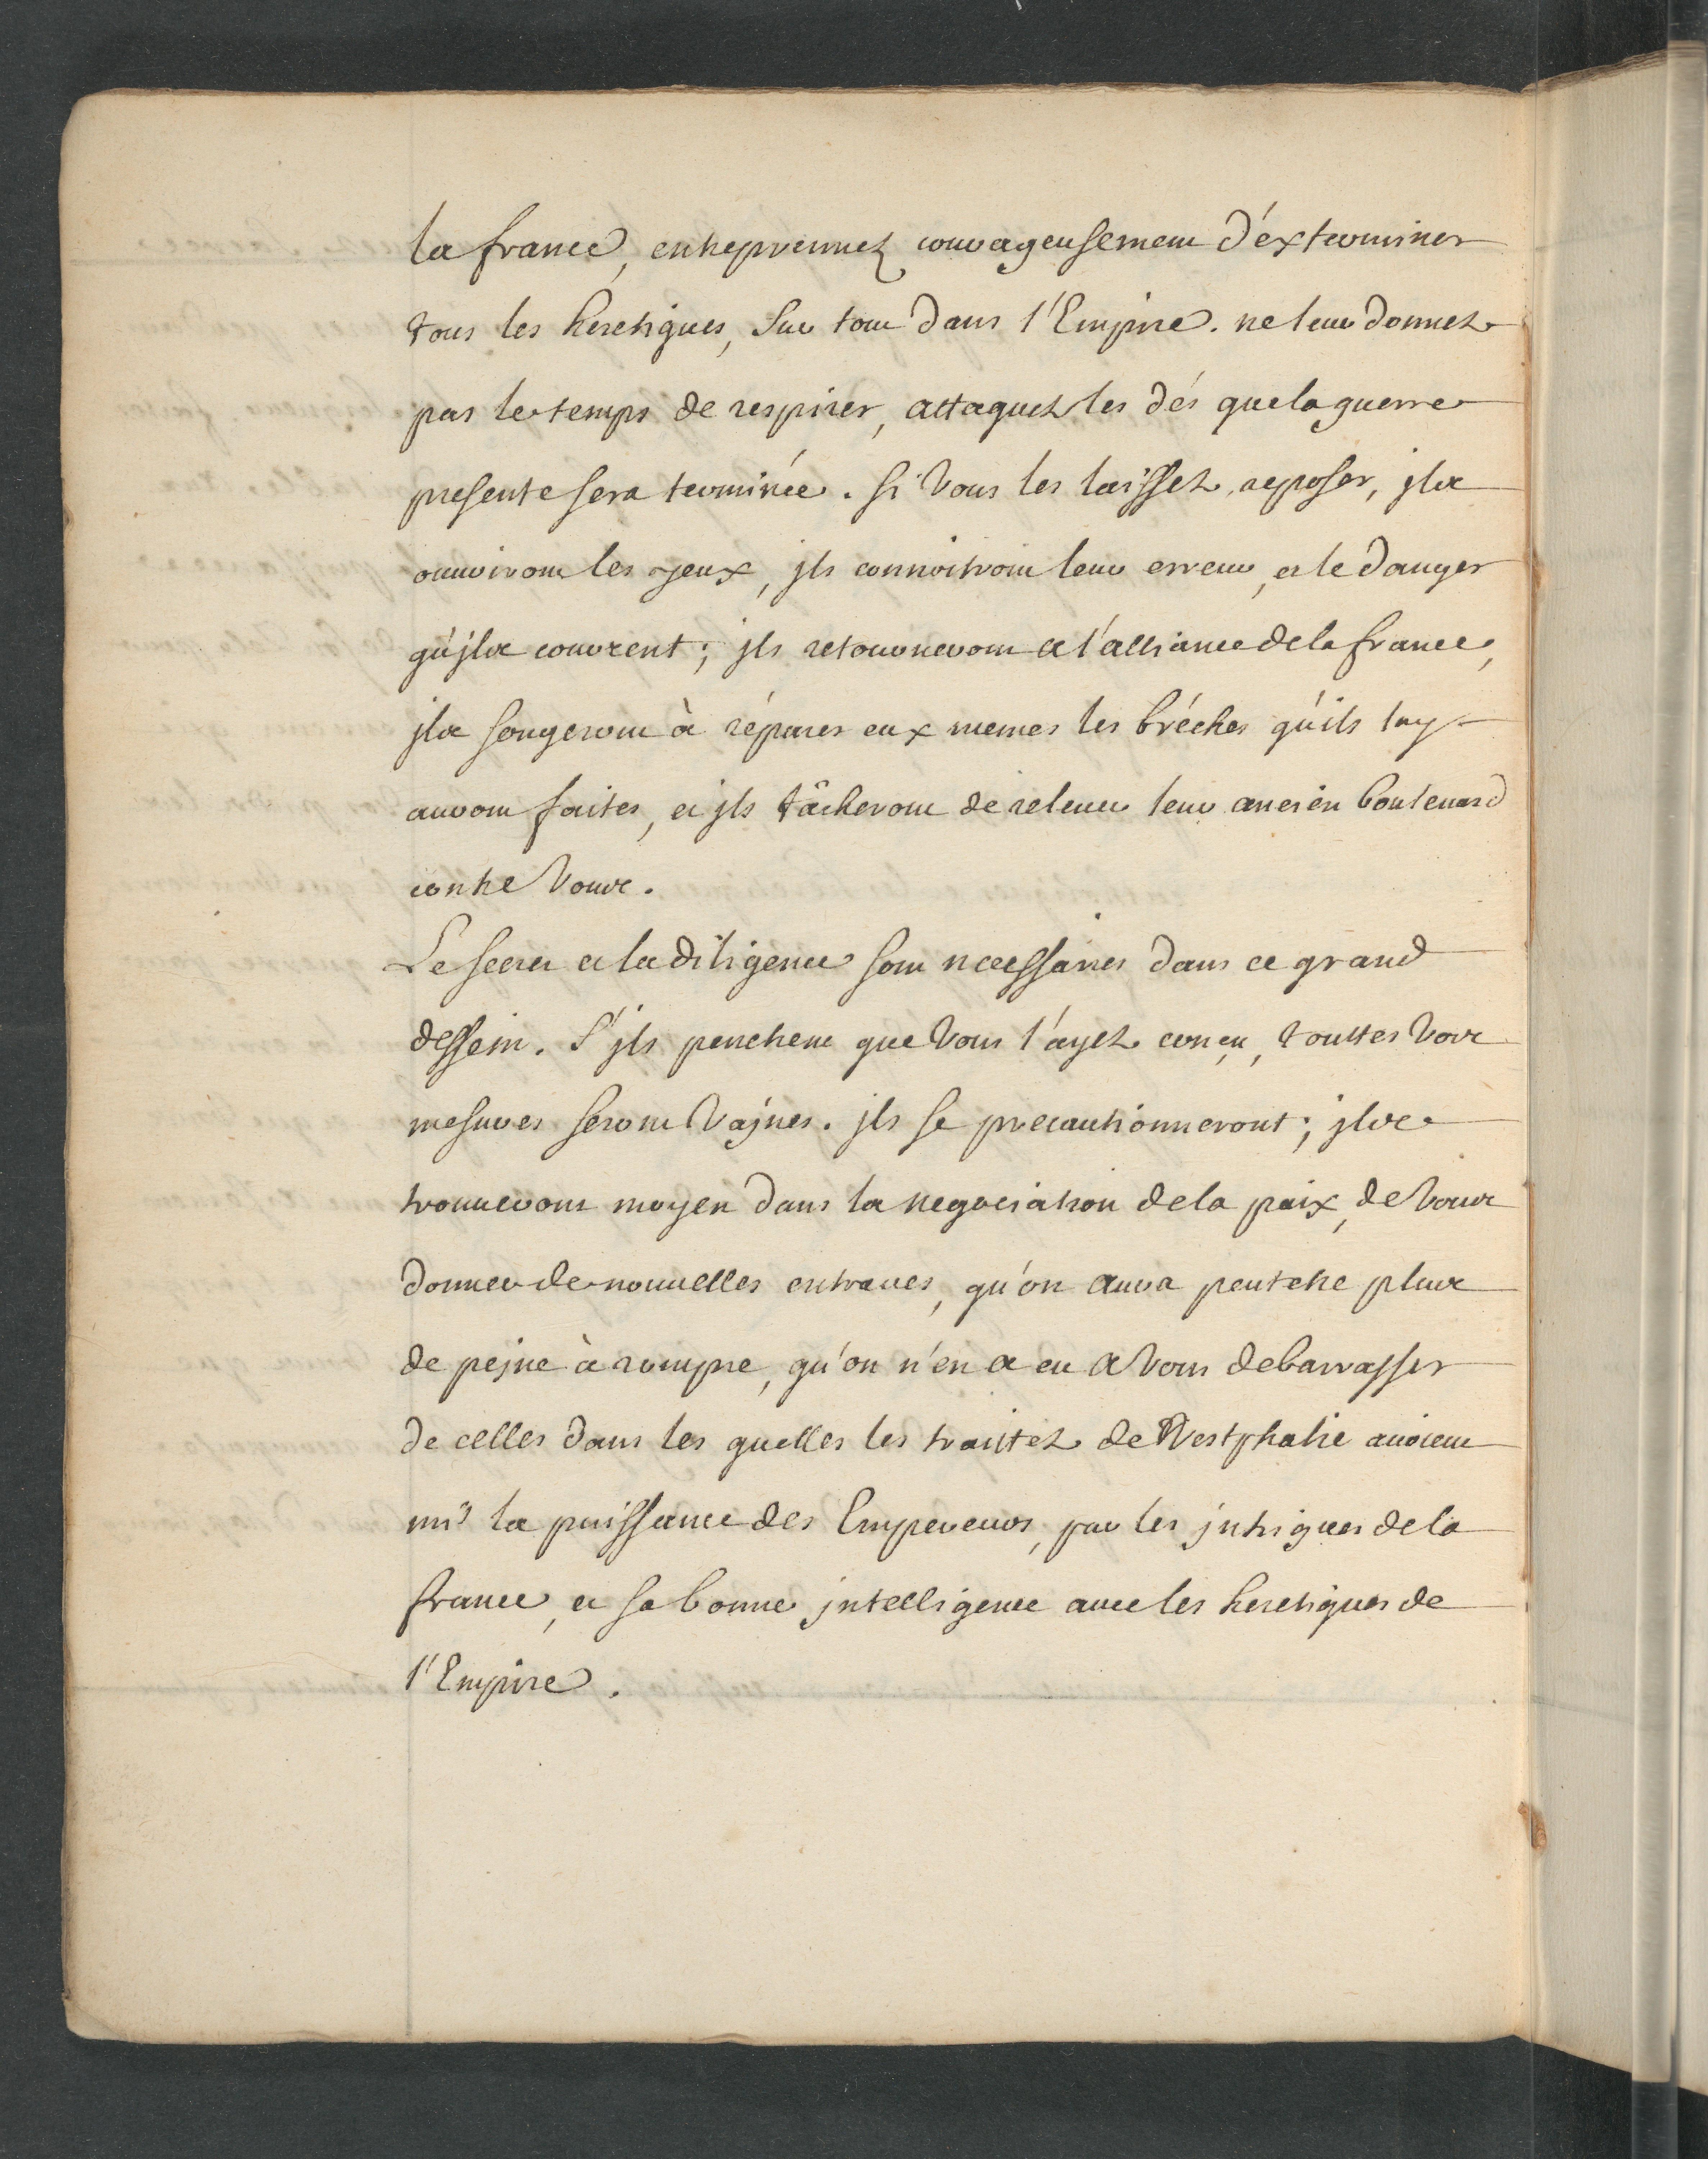 la france, entreprennez courageusement d'éxterminer
tous les heretiques, sur tout dans l'Empire. ne leur donnez
pas le temps de respirer, attaquez les dés que la guerre
presente sera terminée. si vous les laissez reposer, jls
ouuriront les yeux, jls connoitront leur erreur, et le danger
qu'jls courent; jls retourneront a l'alliance de la france,
jls songeront à réparer eux memes les bréches qu'ils luy
auront faites, et jls tâcheront de releuer leur ancien bouleuard
contre vous.
Le secret et la diligence sont necessaires dans ce grand
dessein. S'jls penchent que vous l'ayez conçu, touttes vos
mesures seront vajnes. jls se precautionneront; jls
trouueront moyen dans la negociation de la paix, de vous
donner de nouuelles entraues, qu'on aura peutetre plus
de pejne à rompre, qu'on n'en a eu a vous debarrasser
de celles dans les quelles les traitez de Westphalie auoient
mis la puissance des Empereurs, par les jntrigues de la
france, et sa bonne jntelligence auec les heretiques de
l'Empire.